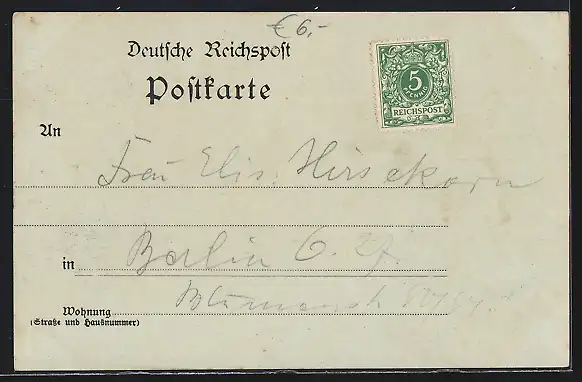 € 6.-
Deutsche Reichspost
Postkarte
5
PFENNIG
REICHSPOST
An
Frau Elis. Hirsekorn
in Berlin C. 27
Blumenstr.
Wohnung
(Straße und Hausnummer)